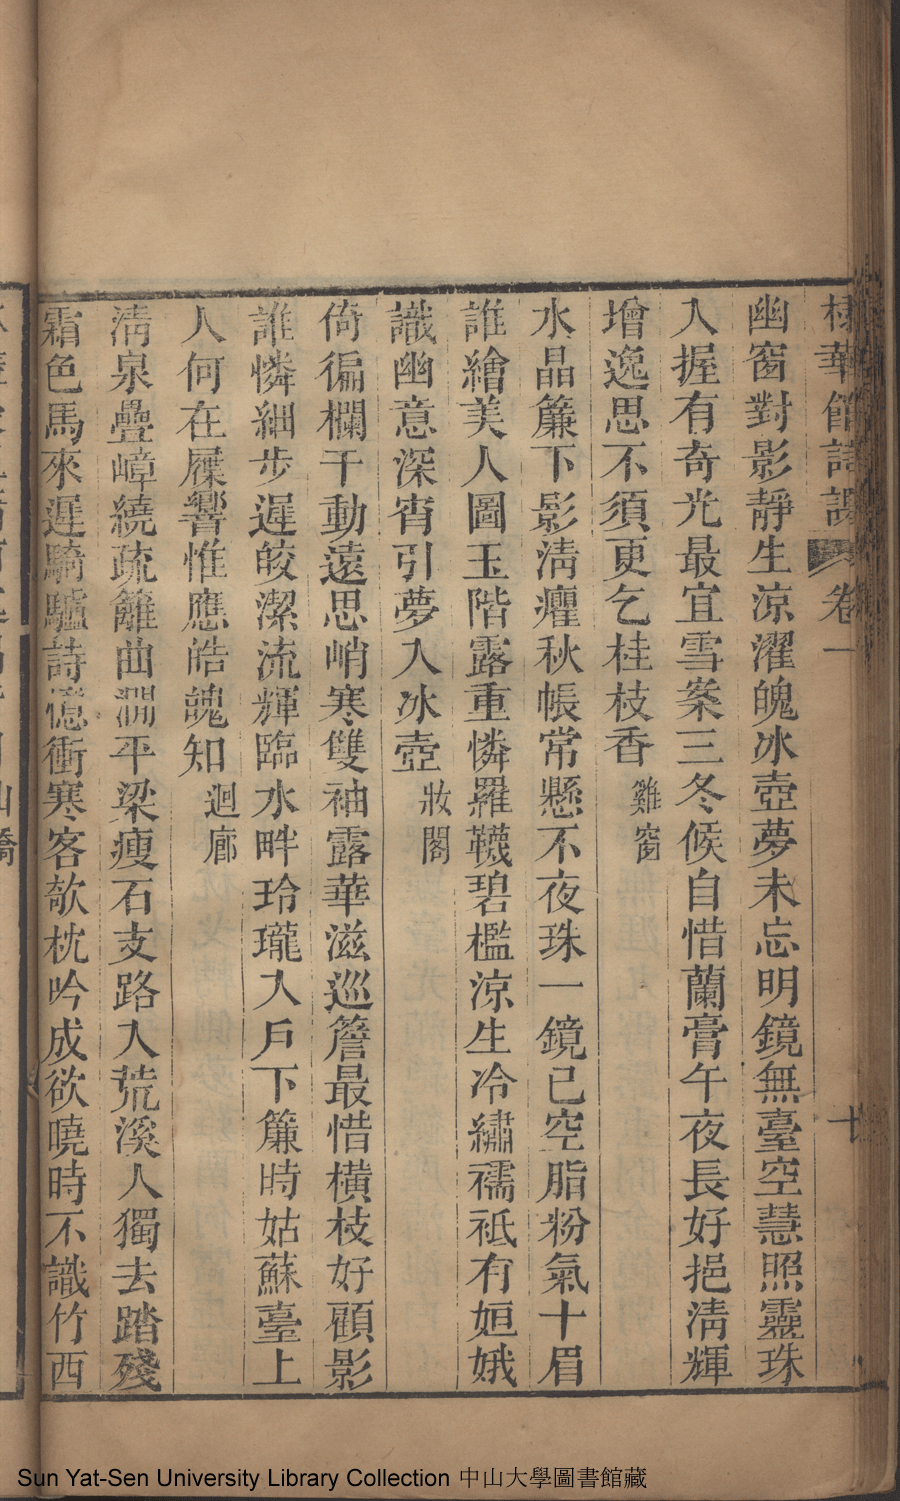 棣華館詩課 卷一 十
幽窗對影靜生涼濯魄冰壺夢未忘明鏡無臺空慧照靈珠
入握有奇光最宜雪案三冬候自惜蘭膏午夜長好挹淸輝
增逸思不須更乞桂枝香 雞窗
水晶簾下影淸癯秋帳常懸不夜珠一鏡已空脂粉氣十眉
誰繪美人圖玉階露重憐羅韈碧檻涼生冷繡襦祗有姮娥
識幽意深宵引夢入冰壺 妝閣
倚徧欄干動遠思峭寒雙袖露華滋巡簷最惜橫枝好顧影
誰憐細步遲皎潔流輝臨水畔玲瓏入戶下簾時姑蘇臺上
人何在屧響惟應皓魄知 迴廊
淸泉疊嶂繞疏籬曲澗平梁瘦石支路入荒溪人獨去踏殘
霜色馬來遲騎驢詩憶衝寒客欹枕吟成欲曉時不識竹西
Sun Yat-Sen University Library Collection 中山大學圖書館藏